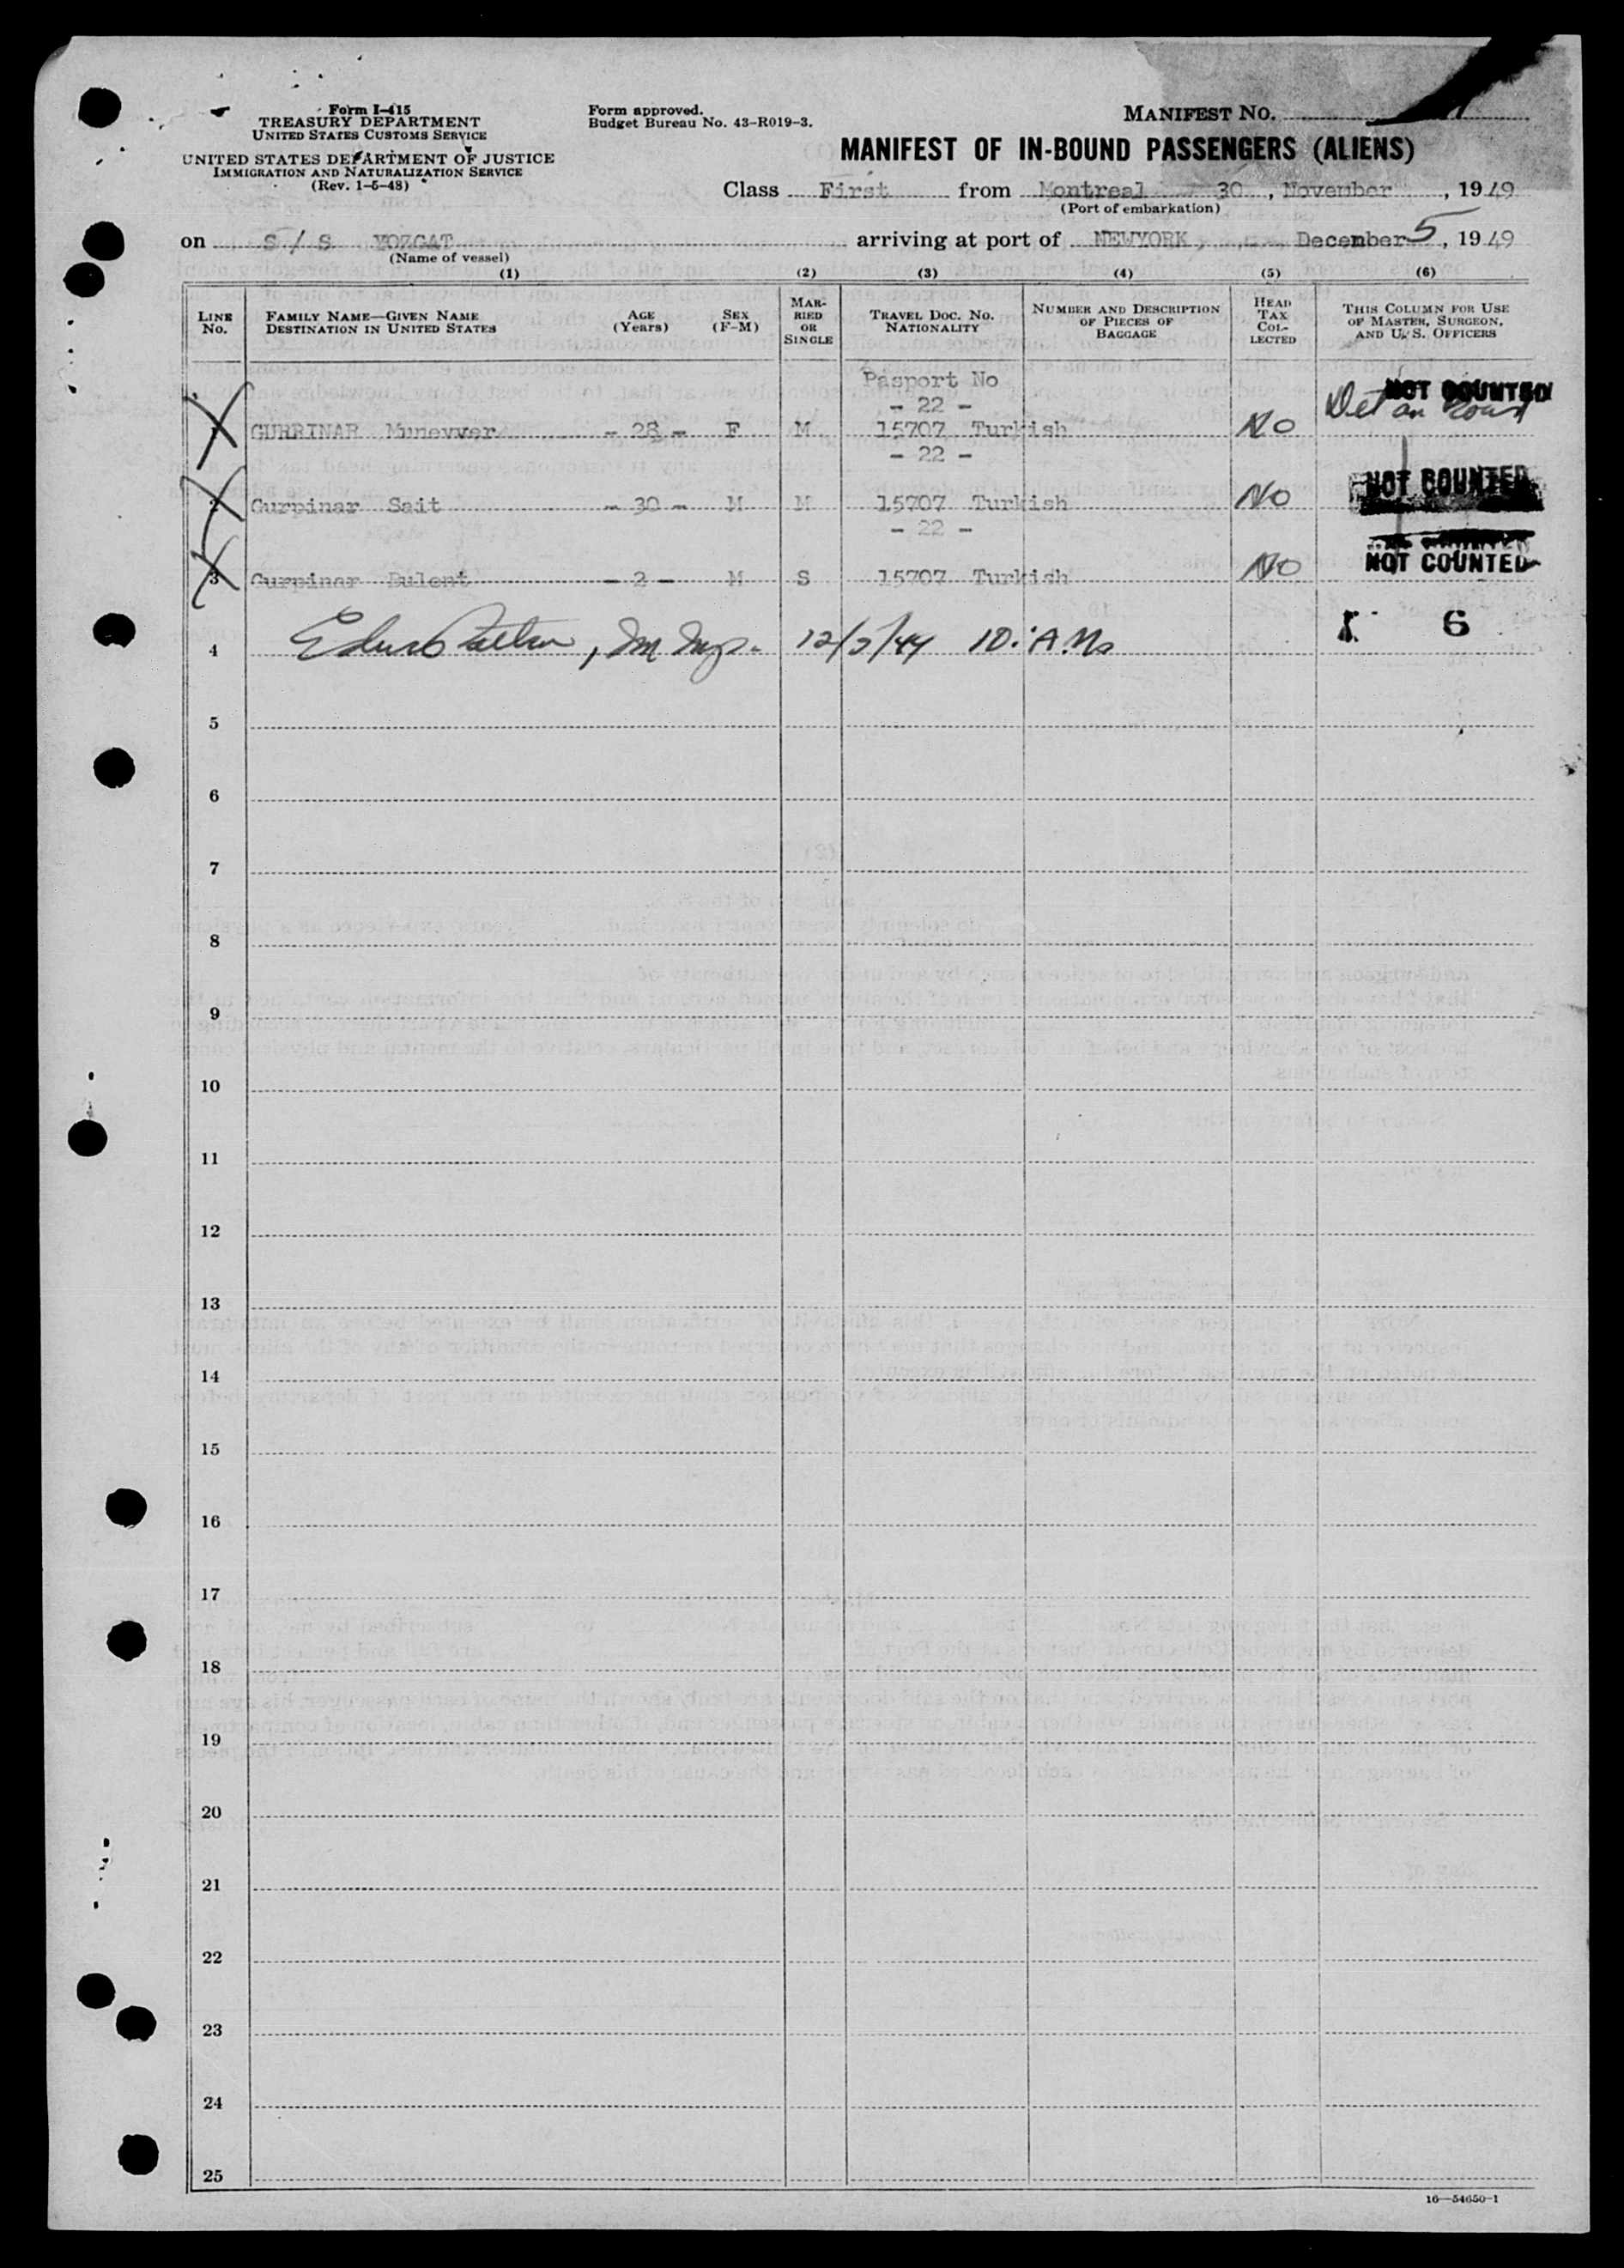 Form I-415
TREASURY DEPARTMENT
UNITED STATES CUSTOMS SERVICE
UNITED STATES DEPARTMENT OF JUSTICE
IMMIGRATION AND NATURALIZATION SERVICE
(Rev. 1-5-48)
Form approved.
Budget Bureau No. 43-R019-3.
MANIFEST NO.
MANIFEST OF IN-BOUND PASSENGERS (ALIENS)
Class First from Montreal 30, November, 1949
(Port of embarkation)
on S/S YOZGAT arriving at port of NEWYORK, December 5, 1949
(Name of vessel)
(1) (2) (3) (4) (5) (6)
LINE No. FAMILY NAME—GIVEN NAME DESTINATION IN UNITED STATES AGE (Years) SEX (F-M) MARRIED OR SINGLE TRAVEL DOC. NO. NATIONALITY NUMBER AND DESCRIPTION OF PIECES OF BAGGAGE HEAD TAX COLLECTED THIS COLUMN FOR USE OF MASTER, SURGEON, AND U. S. OFFICERS
Pasport No
- 22 - NOT COUNTED
GURRINAR Munevver - 28 - F M 15707 Turkish No Det on
- 22 -
Gurpinar Sait - 30 - M M 15707 Turkish No NOT COUNTED
- 22 -
3 Gurpinar Bulent - 2 - M S 15707 Turkish No NOT COUNTED
4 10: A.M. 6
5
6
7
8
9
10
11
12
13
14
15
16
17
18
19
20
21
22
23
24
25
16—54650-1